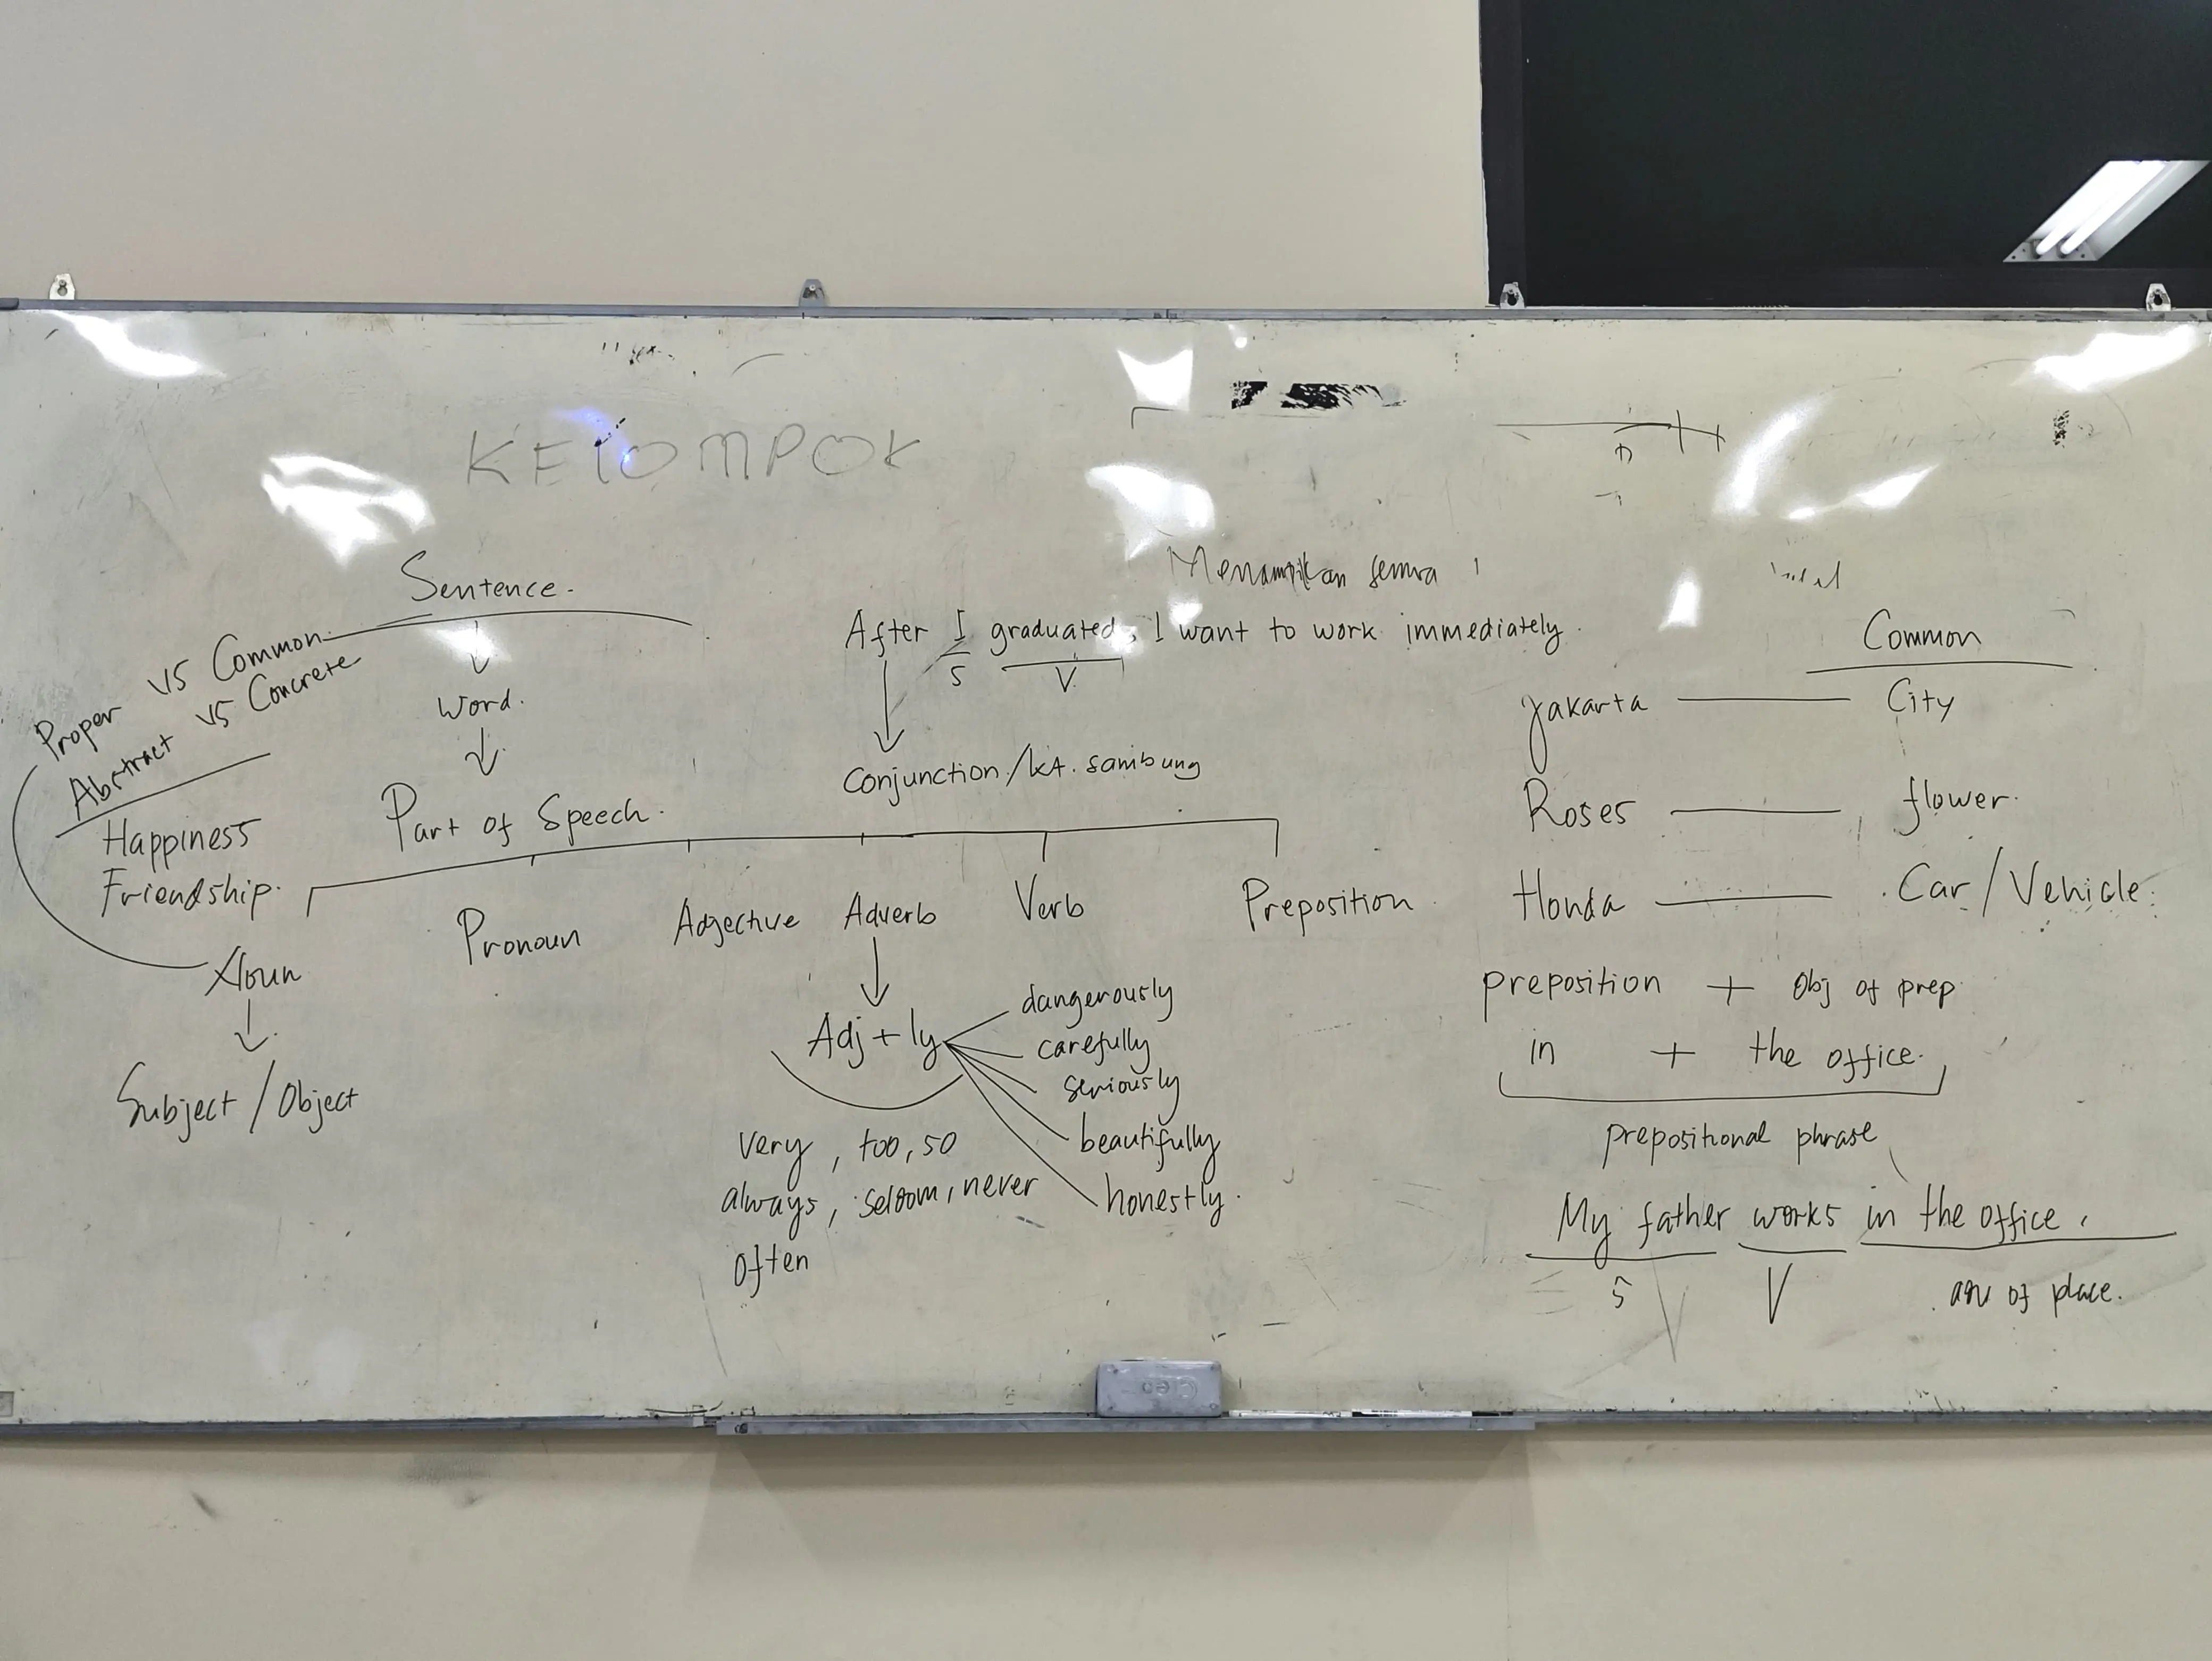 KELOMPOK
Sentence.
Word.
Part of Speech.
Proper vs Common
Abstract vs Concrete
Happiness
Friendship.
Noun
Subject / Object
Pronoun
Adjective
Adverb
Verb
Preposition
Adj + ly
dangerously
carefully
seriously
beautifully
honestly.
very, too, so
always, seldom, never
often
Menampikan semua
After I graduated, I want to work immediately.
S V
Conjunction / kt. sambung
Common
Jakarta City
Roses flower.
Honda Car / Vehicle.
preposition + Obj of prep.
in + the office.
prepositional phrase
My father works in the office.
S V adv of place.